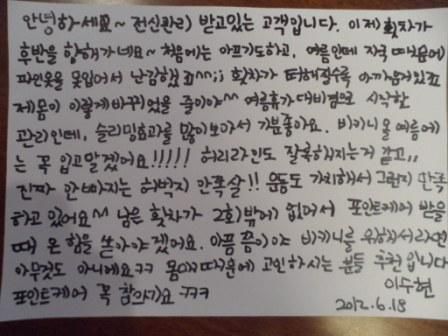 안녕하세요~ 전신관리 받고있는 고객입니다. 이제 횟차가
후반을 향해가네요~ 처음에는 아프기도하고, 여름인데 자국 때문에
파인옷을 못입어서 난감했죠^^;; 횟차가 더해질수록 아까움게있죠
제몸이 이렇게바뀌었을 줄이야~ 여름휴가대비겸으로 시작한
관리인데, 슬리밍효과를 많이보아서 기분좋아요. 비키니 올 여름에
는 꼭 입고말겠어요!!!!! 허리라인도 잘록해지는거 같고,,
진짜 안빠지는 허벅지 안쪽살!! 운동도 같이해서 그런지 만족
하고 있어요^^ 남은 횟차가 2회밖에 없어서 포인트케어 받을
때 온 힘을 쏟아야겠어요. 아픔쯤이야 비키니를 위해서라면
아무것도 아니에요ㅋㅋ 몸매때문에 고민하시는 분들 추천입니다
포인트케어 꼭 참아기요 ㅋㅋㅋ 이수현
2012.6.18